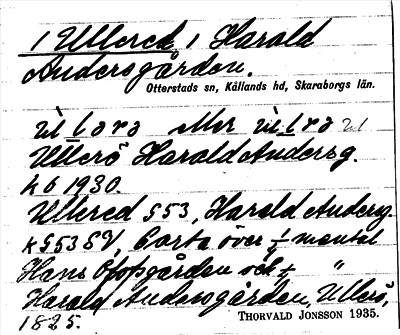 1 Ullered, 1 Harald
Andersgården.
Otterstads sn, Kållands hd, Skaraborgs län.
Ullerö Harald Andersg.
k 6 1930.
Ullered § 53, Harald Andersg.
k § 53 SV, Carta över ½ mantal
Hans Olofsgården och ½ "
Harald Andersgården, Ullerö,
1825.
THORVALD JONSSON 1935.